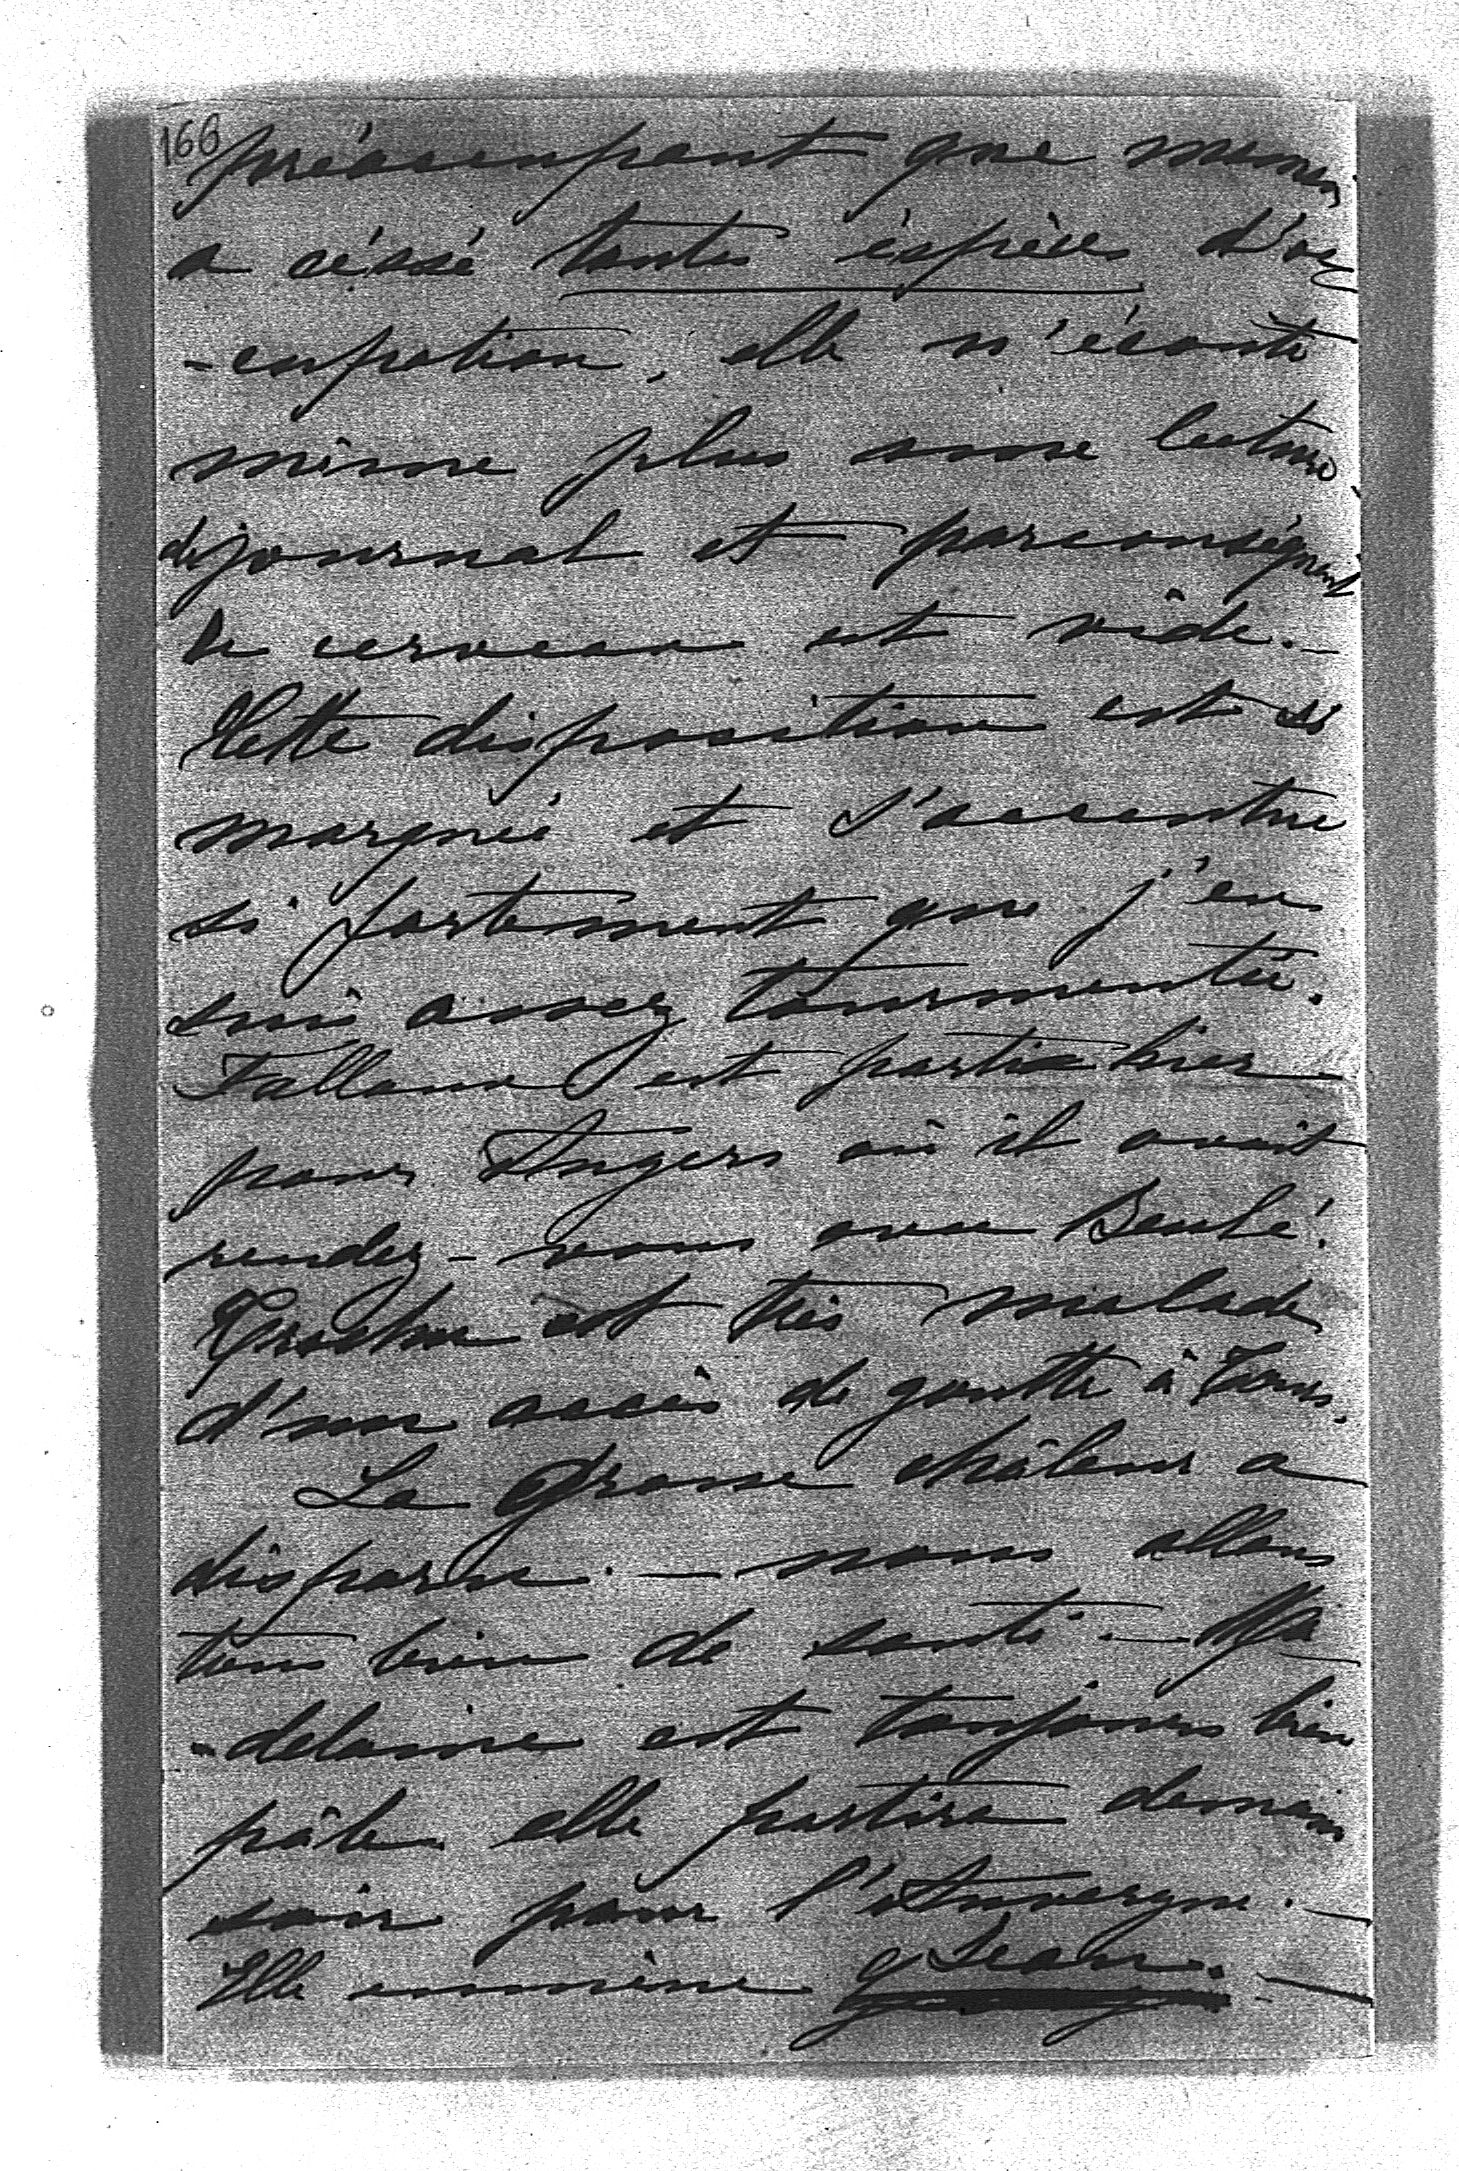 166
préoccupant que maman
a céssé toutes éspèces d'oc
-cupation, elle n'écoute
même plus une lecture
de journal et parconséquent
le cerveau est vide._
Cette disposition est si
marquée et s'accentue
si fortement que j'en
suis assez tourmentée.
Falloux est partia hier
pour Angers où il avait
rendez-vous avec Beulé.
Cruchon est très malade
d'un accès de goutte à Tours.
La grosse châleur a
disparu. _ nous allons
tous bien de santé _ Ma
-delaine est toujours bien
pâle elle partira demain
soir pour l'Auvergne. _
Elle emmène Jean. _